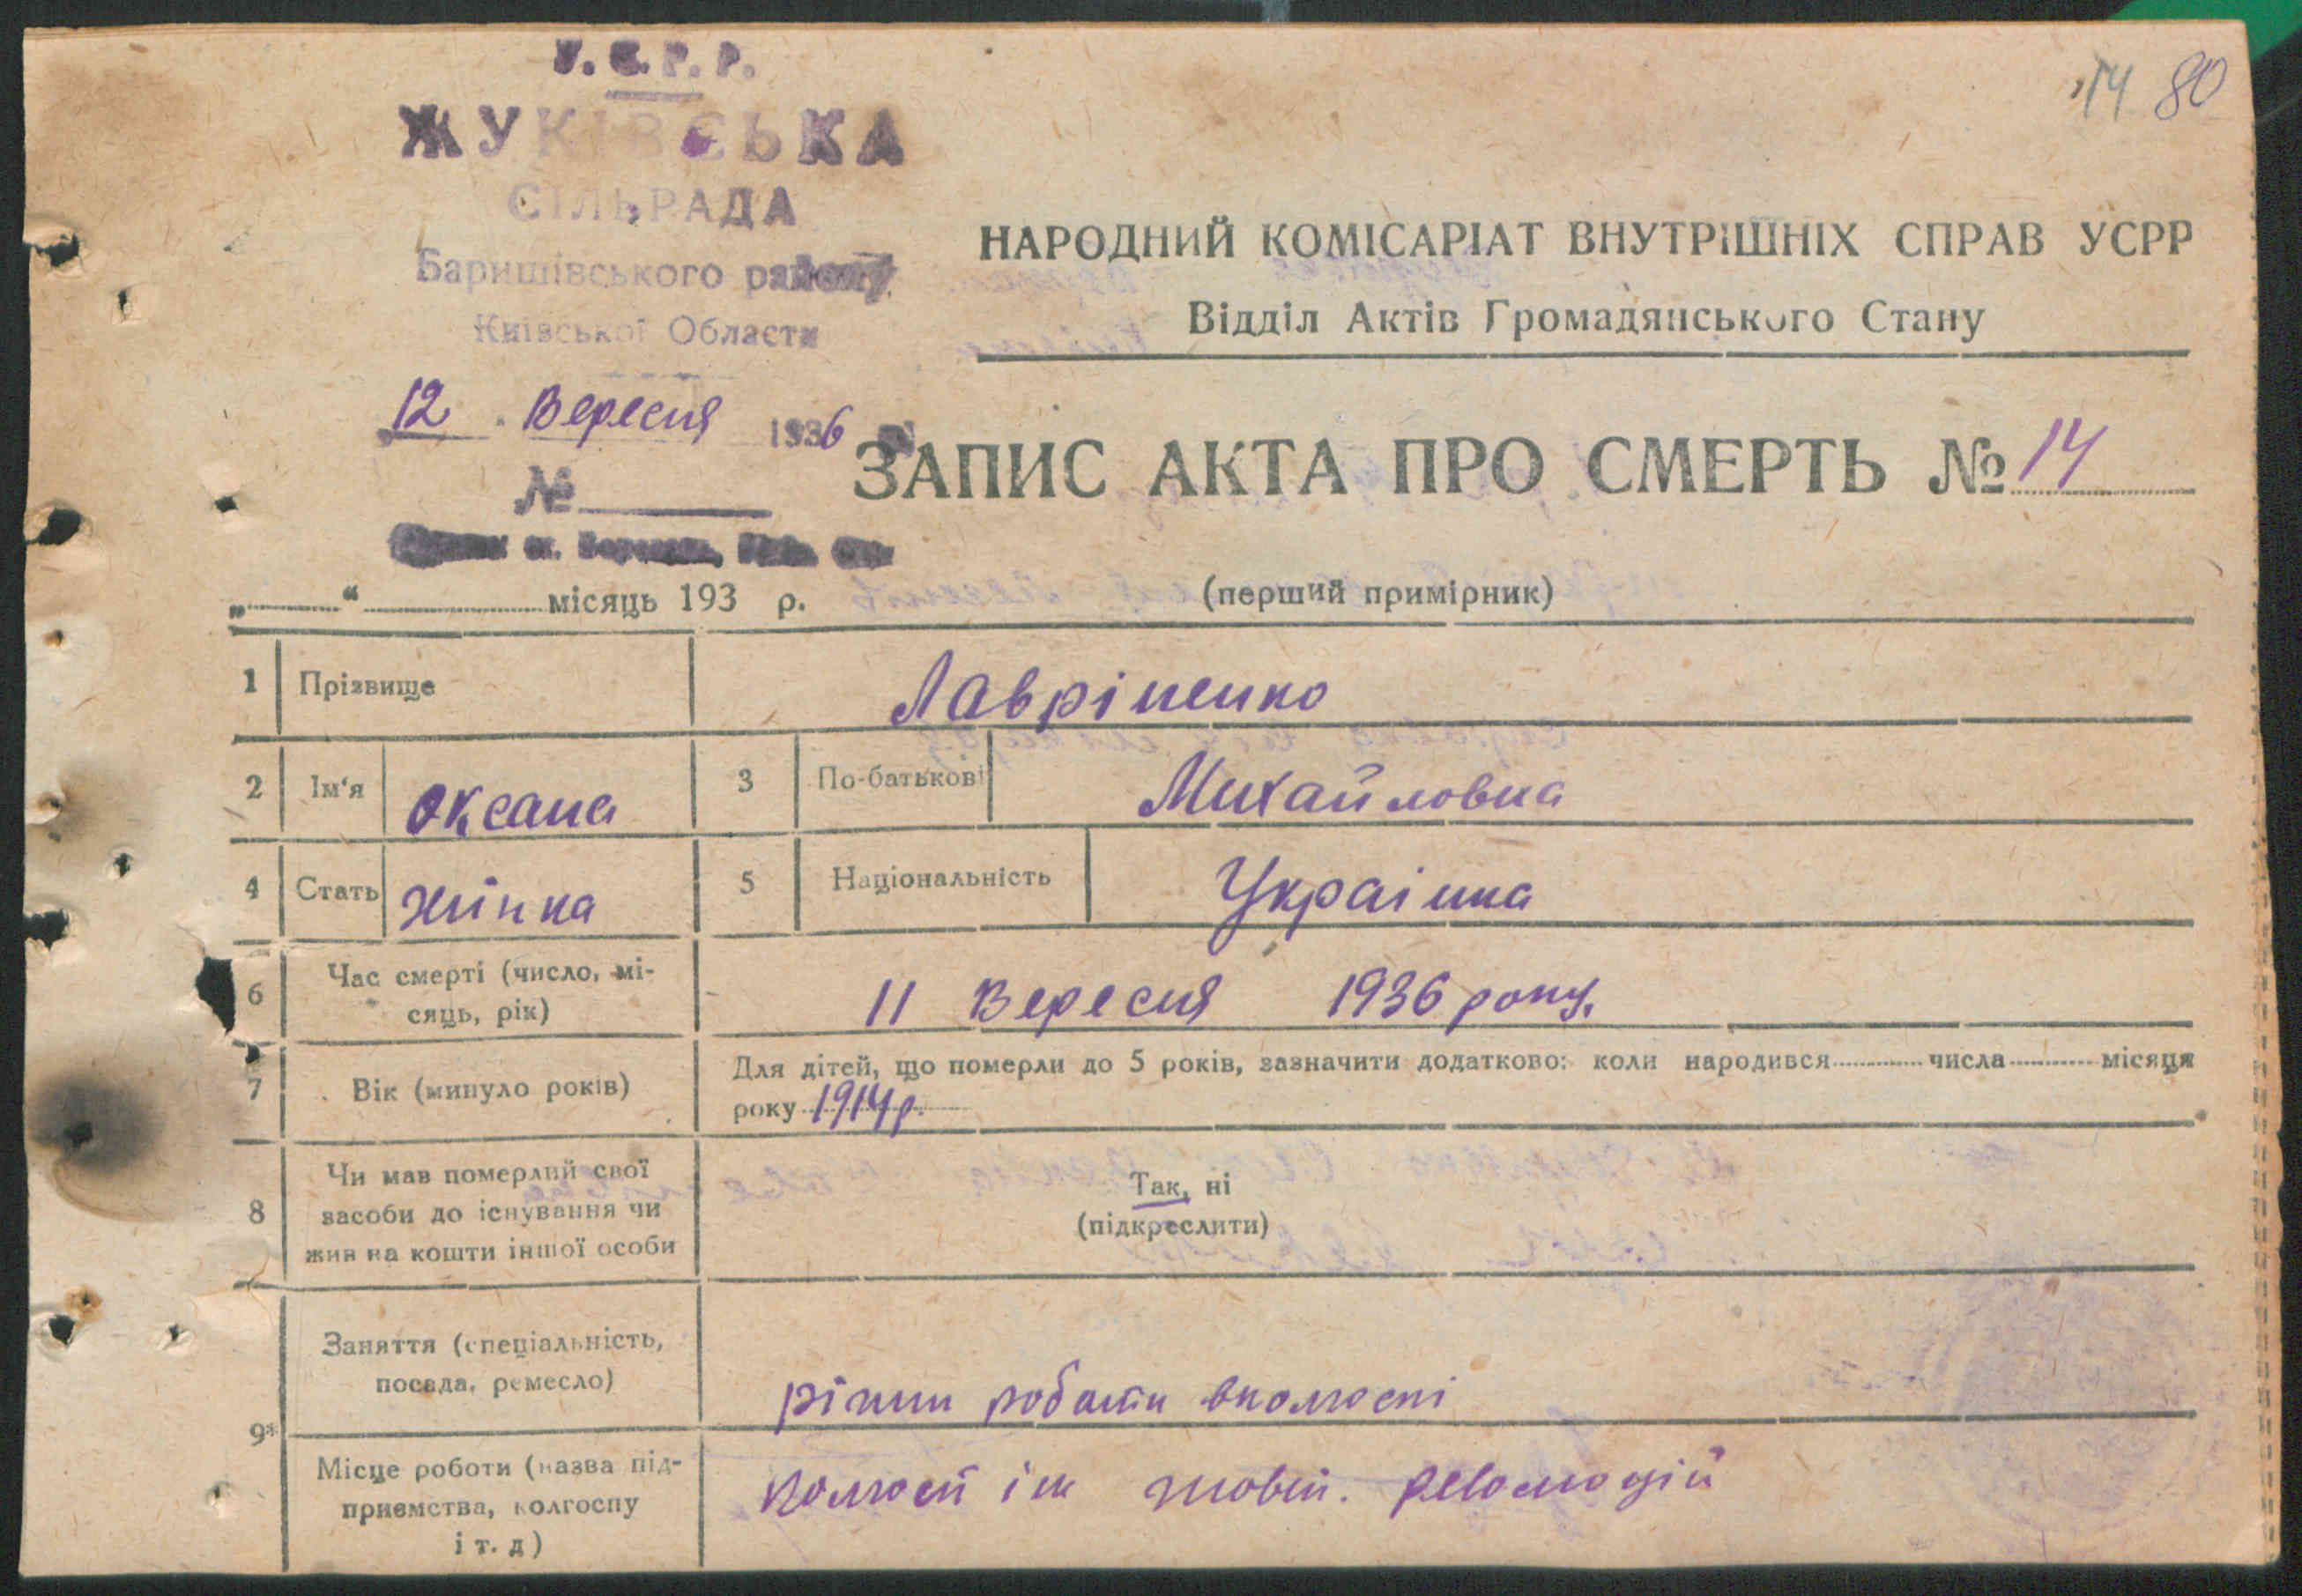 У.С.Р.Р.
ЖУКІВСЬКА
СІЛЬРАДА
Баришівського району
Київської Области
12 . Вересня 1936
№
14 80
НАРОДНИЙ КОМІСАРІАТ ВНУТРІШНІХ СПРАВ УСРР
Відділ Актів Громадянського Стану
ЗАПИС АКТА ПРО СМЕРТЬ № 14
„ “ місяць 193 р.
(перший примірник)
1 Прізвище Лавріненко
2 Ім'я Оксана 3 По-батькові Михайловна
4 Стать жінка 5 Національність Украінка
6 Час смерті (число, мі-
сяць, рік) 11 Вересня 1936 року.
7 Вік (минуло років) Для дітей, що померли до 5 років, зазначити додатково: коли народився числа місяця
року 1914 р.
8 Чи мав померлий свої
засоби до існування чи
жив на кошти іншої особи
Так, ні
(підкреслити)
9 Заняття (спеціальність,
посада, ремесло) різни роботи вколгоспі
Місце роботи (назва під-
приємства, колгоспу
і т. д) колгосп ім жовт. революцій